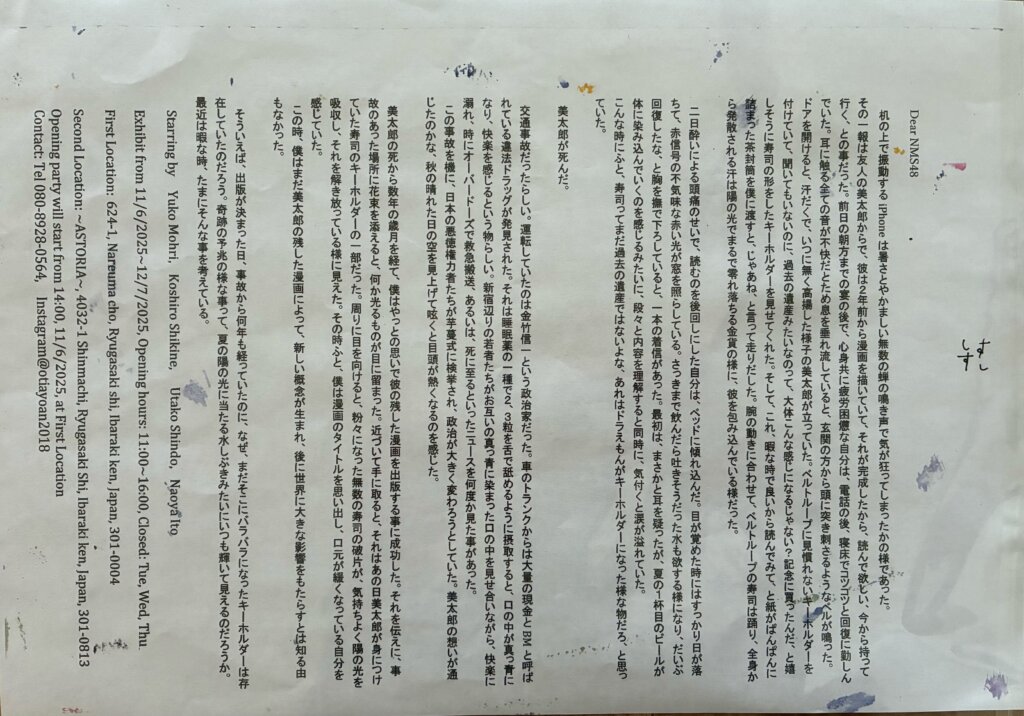 Dear NMS48
机の上で振動する iPhone は暑さとやかましい無数の蝉の鳴き声で気が狂ってしまったかの様であった。
その一報は友人の美太郎からで、彼は２年前から漫画を描いていて、それが完成したから、読んで欲しい、今から持って
行く、との事だった。前日の朝方までの宴の後で、心身共に疲労困憊な自分は、電話の後、寝床でコツコツと回復に勤しん
でいた。耳に触る全ての音が不快だとため息を垂れ流していると、玄関の方から頭に突き刺さるようなベルが鳴った。
ドアを開けると、汗だくで、いつに無く高揚した様子の美太郎が立っていた。ベルトループに見慣れないキーホルダーを
付けていて、聞いてもいないのに、過去の遺産みたいなのって、大体こんな感じになるじゃない？記念に買ったんだ、と嬉
しそうに寿司の形をしたキーホルダーを見せてくれた。そして、これ、暇な時で良いから読んでみて、と紙がぱんぱんに
詰まった茶封筒を僕に渡すと、じゃあね、と言って走りだした。腕の動きに合わせて、ベルトループの寿司は踊り、全身か
ら発散される汗は陽の光でまるで零れ落ちる金貨の様に、彼を包み込んでいる様だった。
二日酔いによる頭痛のせいで、読むのを後回しにした自分は、ベッドに傾れ込んだ。目が覚めた時にはすっかり日が落
ちて、赤信号の不気味な赤い光が窓を照らしている。さっきまで飲んだら吐きそうだった水も欲する様になり、だいぶ
回復したな、と胸を撫で下ろしていると、一本の着信があった。最初は、まさかと耳を疑ったが、夏の１杯目のビールが
体に染み込んでいくのを感じるみたいに、段々と内容を理解すると同時に、気付くと涙が溢れていた。
こんな時にふと、寿司ってまだ過去の遺産ではないよな、あれはドラえもんがキーホルダーになった様な物だろ、と思っ
ていた。
美太郎が死んだ。
交通事故だったらしい。運転していたのは金竹信一という政治家だった。車のトランクからは大量の現金と BM と呼ば
れている違法ドラッグが発見された。それは睡眠薬の一種で２、３粒を舌で舐めるように摂取すると、口の中が真っ青に
なり、快楽を感じるという物らしい。新宿辺りの若者たちがお互いの真っ青に染まった口の中を見せ合いながら、快楽に
溺れ、時にオーバードーズで救急搬送、あるいは、死に至るといったニュースを何度か見た事があった。
この事故を機に、日本の悪徳権力者たちが芋蔓式に検挙され、政治が大きく変わろうとしていた。美太郎の想いが通
じたのかな、秋の晴れた日の空を見上げて呟くと目頭が熱くなるのを感じた。
美太郎の死から数年の歳月を経て、僕はやっとの思いで彼の残した漫画を出版する事に成功した。それを伝えに、事
故のあった場所に花束を添えると、何か光るものが目に留まった。近づいて手に取ると、それはあの日美太郎が身につけ
ていた寿司のキーホルダーの一部だった。周りに目を向けると、粉々になった無数の寿司の破片が、気持ちよく陽の光を
吸収し、それを解き放っている様に見えた。その時ふと、僕は漫画のタイトルを思い出し、口元が緩くなっている自分を
感じていた。
この時、僕はまだ美太郎の残した漫画によって、新しい概念が生まれ、後に世界に大きな影響をもたらすとは知る由
もなかった。
そういえば、出版が決まった日、事故から何年も経っていたのに、なぜ、まだそこにバラバラになったキーホルダーは存
在していたのだろう。奇跡の予兆の様な事って、夏の陽の光に当たる水しぶきみたいにいつも輝いて見えるのだろうか。
最近は暇な時、たまにそんな事を考えている。
Starring by Yuko Mohri, Koshiro Shikine, Utako Shindo, Naoya Ito
Exhibit from 11/6/2025~12/7/2025, Opening hours: 11:00~16:00, Closed: Tue, Wed, Thu
First Location: 624-1, Nareuma cho, Ryugasaki shi, Ibaraki ken, Japan, 301-0004
Second Location: ~ASTORIA~, 4032-1 Shinmachi, Ryugasaki Shi, Ibaraki ken, Japan, 301-0813
Opening party will start from 14:00, 11/6/2025, at First Location
Contact: Tel 080-8928-0564, Instagram@otiayoan2018